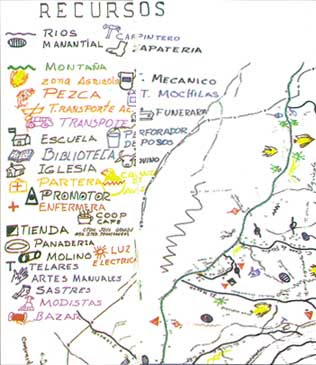 RECURSOS
RIOS
MANANTIAL
CARPINTERO
ZAPATERIA
MONTAÑA
ZONA AGRICOLA
PEZCA
T.TRANSPORTE AL.
TRANSPOTE
ESCUELA
BIBLIOTECA
IGLESIA
PARTERA
PROMOTOR
ENFERMERA
COOP
CAFE
TIENDA
PANADERIA
MOLINO
TELARES
ARTES MANUALES
SASTRES
MODISTAS
BAZAR
MECANICO
T. MOCHILAS
FUNERARIA
PERFORADOR
DE POSOS
LUZ
ELECTRICA